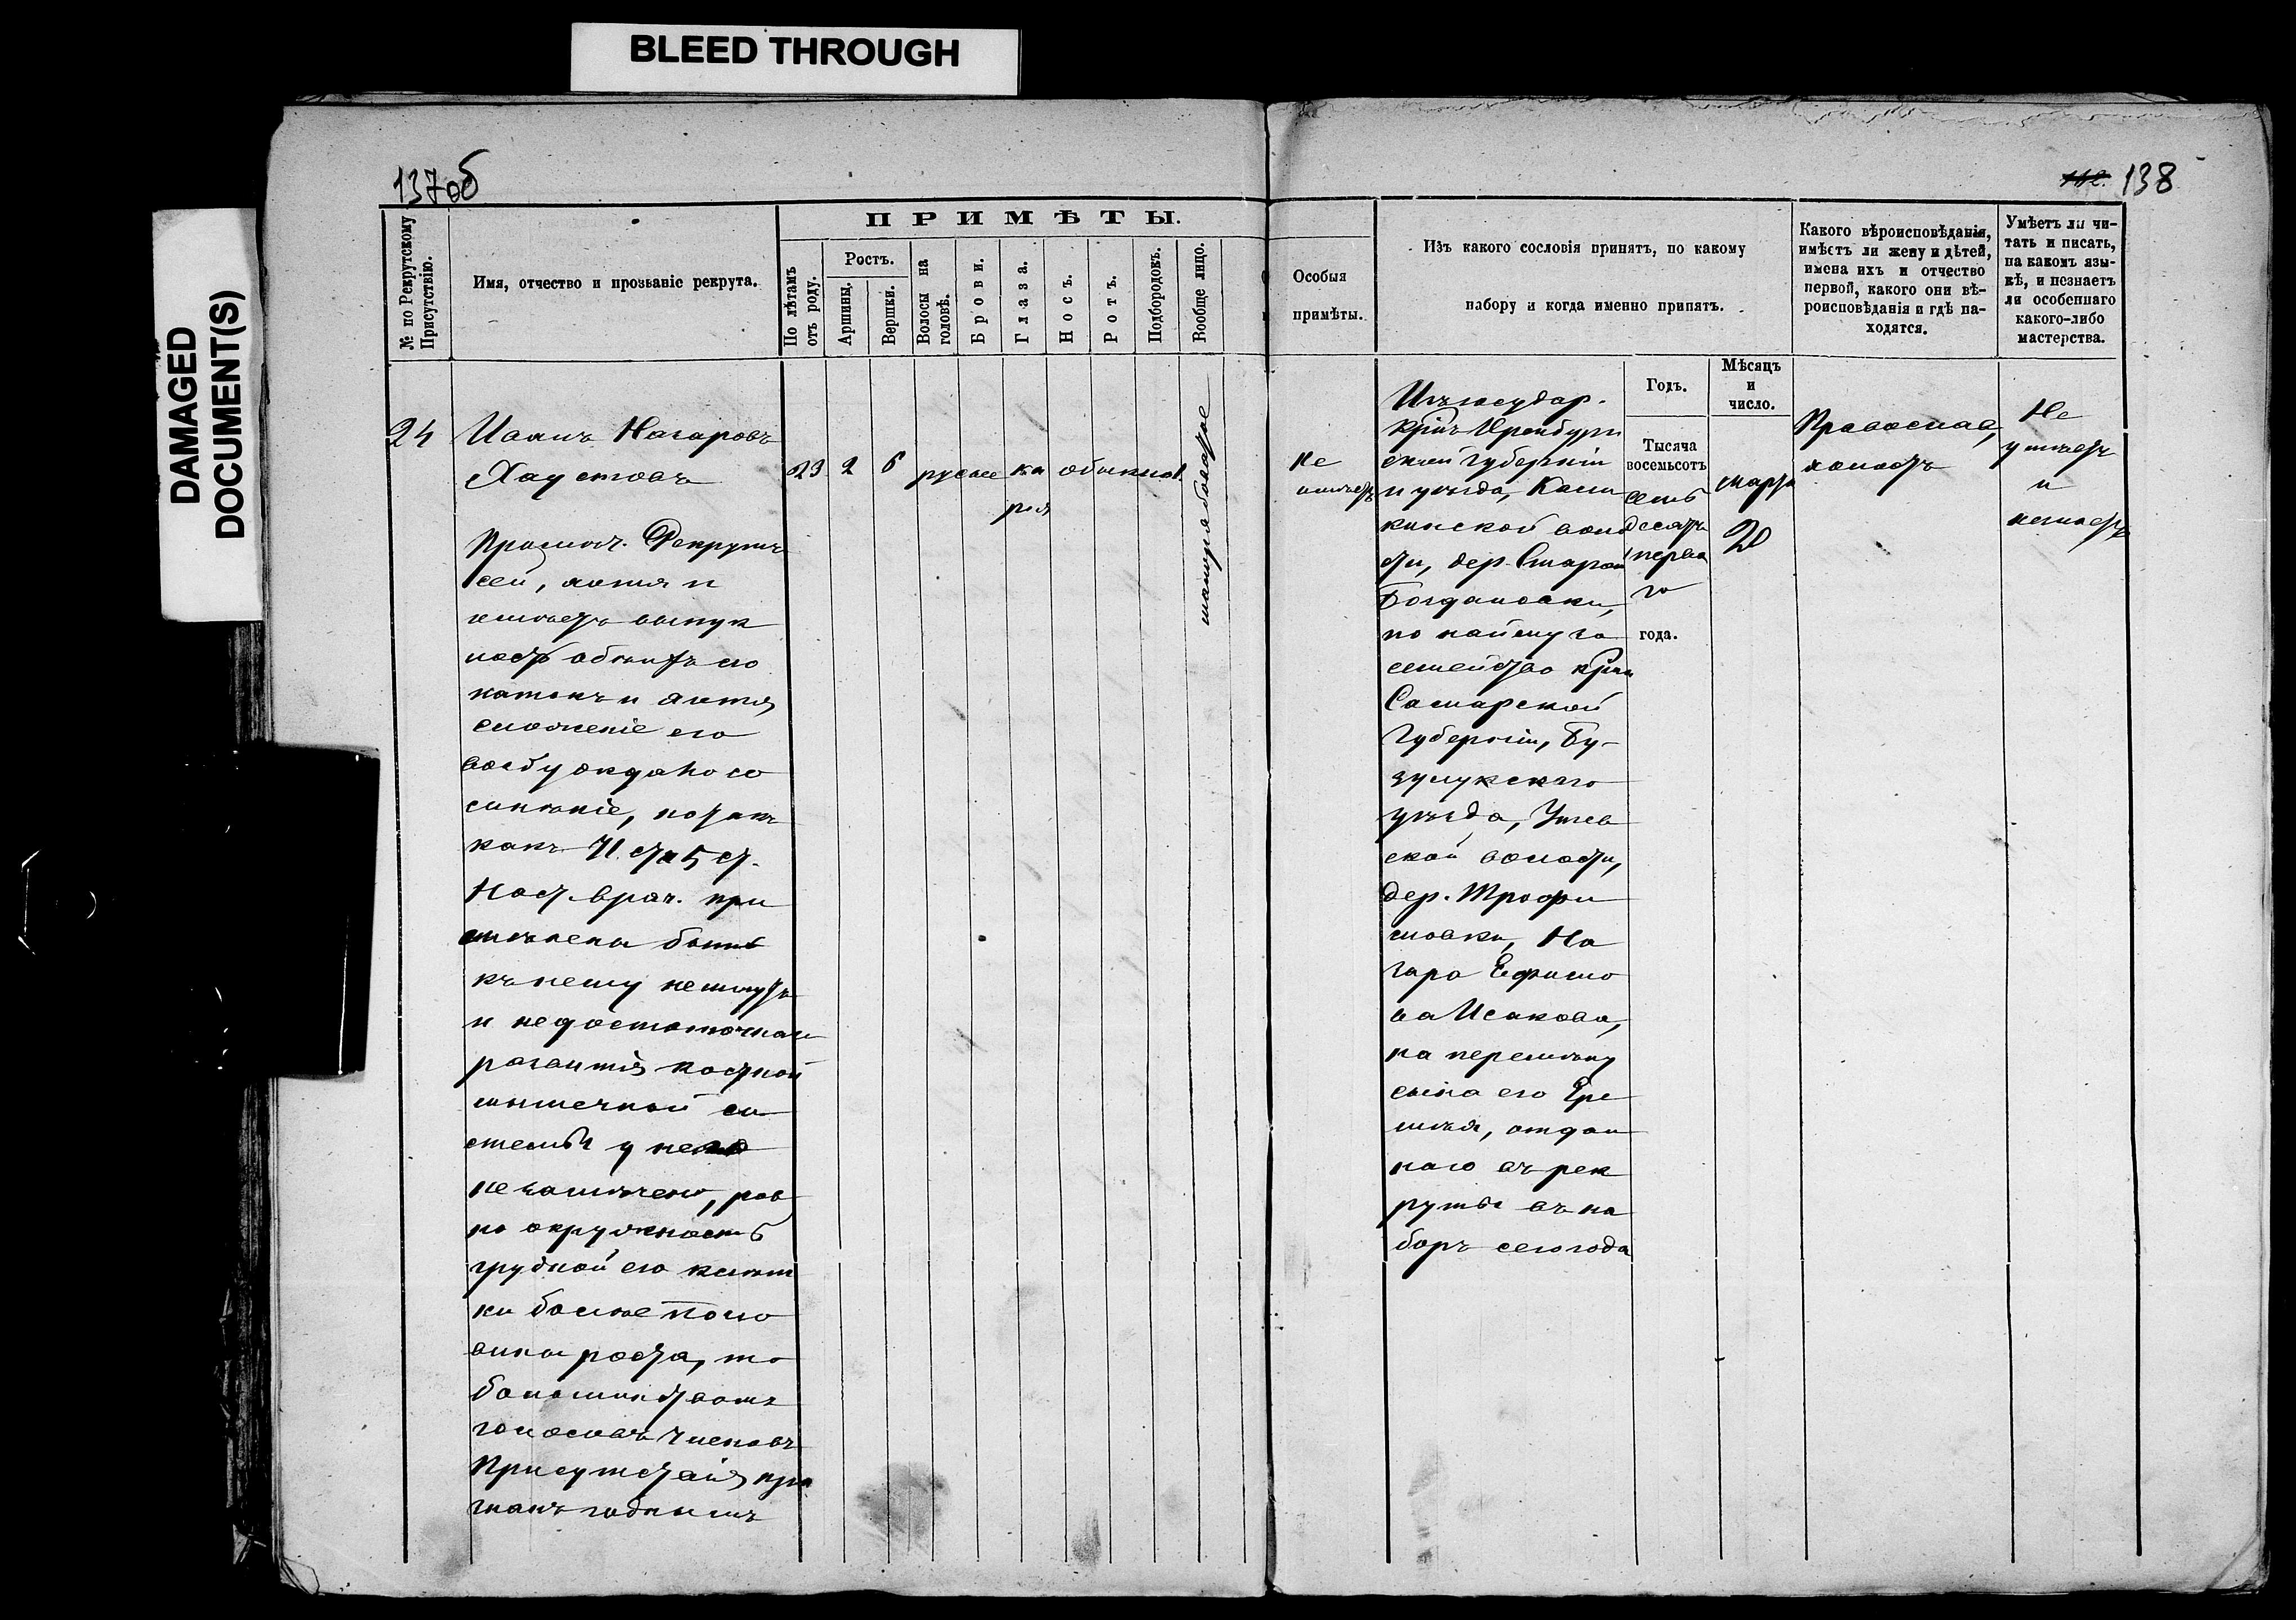 BLEED THROUGH
DAMAGED
DOCUMENT(S)
137об
138
№ по Рекрутскому
Присутствію.
Имя, отчество и прозваніе рекрута.
ПРИМѢТЫ.
По лѣтамъ
отъ роду.
Ростъ.
Аршины.
Вершки.
Волосы на
головѣ.
Брови.
Глаза.
Носъ.
Ротъ.
Подбородокъ.
Вообще лицо.
Особыя
примѣты.
Изъ какого сословія принятъ, по какому
набору и когда именно принятъ.
Какого вѣроисповѣданія,
имѣетъ ли жену и дѣтей,
имена ихъ и отчество
первой, какого они вѣ-
роисповѣданія и гдѣ на-
ходятся.
Умѣетъ ли чи-
тать и писать,
на какомъ язы-
кѣ, и незнаетъ
ли особеннаго
какого-либо
мастерства.
Годъ.
Мѣсяцъ
и
число.
24
Иванъ Назаровъ
Хаустовъ
23 2 6 русые ка обыкнов.
рія
Рекрутъ
сей, хотя и
имѣетъ выпук
ность обѣихъ его
и хотя
сложеніе его
возбуждало со
мнѣніе, но такъ
какъ 71 ст и 5 ст.
Наст. врач. при
мѣнены быть
къ нему не могутъ
и недостаточнаго
развитія костной
мышечной си
стемы у него
не замѣчено, рав
но окружность
грудной его клѣт
ки болѣе поло
вины роста, то
большинствомъ
голосовъ членовъ
Присутствія при
знанъ годнымъ
Не
имѣетъ
Изъ государ.
крнъ Оренбург
ской губерніи
и уѣзда, Каш
кинской воло
сти, дер. Старой
Богдановки,
по найму за
семейство крна
Самарской
Губерніи, Бу-
зулукскаго
уѣзда, Утев
ской волости,
дер. Трофи
мовки, На
зара Ефимо
ва Исакова,
на перемѣну
сына его Ере
мѣя, отдан
наго въ рек
руты въ на
боръ сего года
Тысяча
восемьсотъ
семь
десятъ
перва
го
года.
марта
20
Православ,
холостъ
Не
умѣетъ
и
незнаетъ